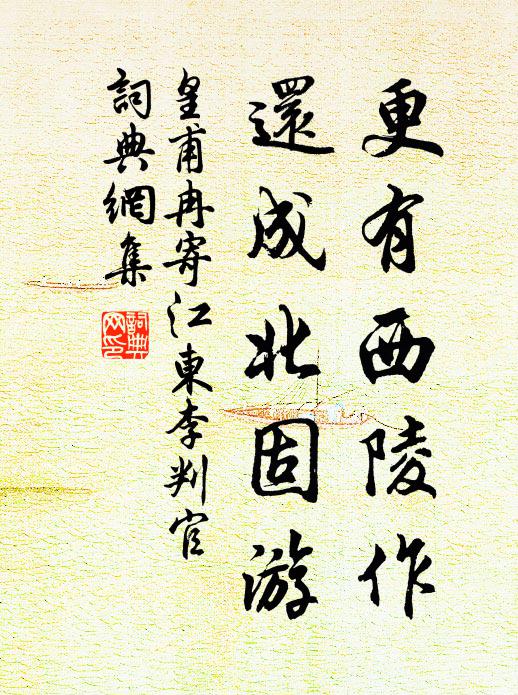 更有西陵作
還成北固游
皇甫冉寄江東李判官
詞典網集
詞典網印